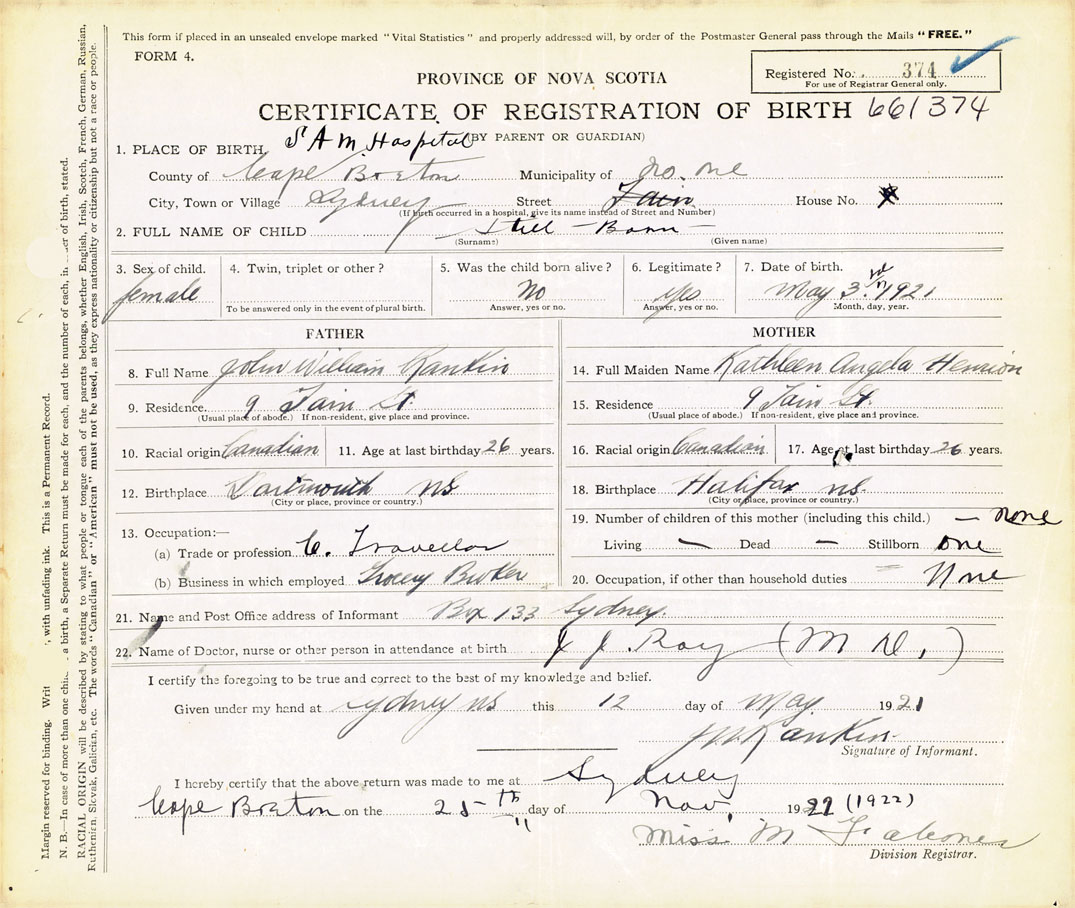 This form if placed in an unsealed envelope marked "Vital Statistics" and properly addressed will, by order of the Postmaster General pass through the Mails "FREE."
FORM 4.
Registered No. 374
For use of Registrar General only.
PROVINCE OF NOVA SCOTIA
CERTIFICATE OF REGISTRATION OF BIRTH 661374
(BY PARENT OR GUARDIAN)
1. PLACE OF BIRTH, St A M Hospital
County of Cape Breton Municipality of No. one
City, Town or Village Sydney Street Tain House No.
(If birth occurred in a hospital, give its name instead of Street and Number)
2. FULL NAME OF CHILD Still - Born -
(Surname) (Given name)
3. Sex of child. female
4. Twin, triplet or other?
To be answered only in the event of plural birth.
5. Was the child born alive? No
Answer, yes or no.
6. Legitimate? Yes
Answer, yes or no.
7. Date of birth. May 3rd 1921
Month, day, year.
FATHER
8. Full Name John William Rankin
9. Residence. 9 Tain St.
(Usual place of abode.) If non-resident, give place and province.
10. Racial origin Canadian 11. Age at last birthday 26 years.
12. Birthplace Dartmouth NS
(City or place, province or country.)
13. Occupation:—
(a) Trade or profession C. Travellor
(b) Business in which employed Grocey Broker
MOTHER
14. Full Maiden Name Kathleen Angela
15. Residence 9 Tain St.
(Usual place of abode.) If non-resident, give place and province.
16. Racial origin Canadian 17. Age at last birthday 26 years.
18. Birthplace Halifax NS.
(City or place, province or country.)
19. Number of children of this mother (including this child.) — none
Living — Dead — Stillborn one
20. Occupation, if other than household duties None
21. Name and Post Office address of Informant Box 133 Sydney.
22. Name of Doctor, nurse or other person in attendance at birth J. J. Roy (M D.)
I certify the foregoing to be true and correct to the best of my knowledge and belief.
Given under my hand at Sydney NS this 12 day of May 1921
J W Rankin
Signature of Informant.
I hereby certify that the above return was made to me at Sydney
Cape Breton on the 25th day of Nov. 1922 (1922)
Miss M
Division Registrar.
Margin reserved for binding. Writ , with unfading ink. This is a Permanent Record.
N. B.—In case of more than one chi a birth, a Separate Return must be made for each, and the number of each, in of birth, stated.
RACIAL ORIGIN will be described by stating to what people or tongue each of the parents belongs, whether English, Irish, Scotch, French, German, Russian,
Ruthenian, Slovak, Galician, etc. The words "Canadian" or "American" must not be used, as they express nationality or citizenship but not a race or people.